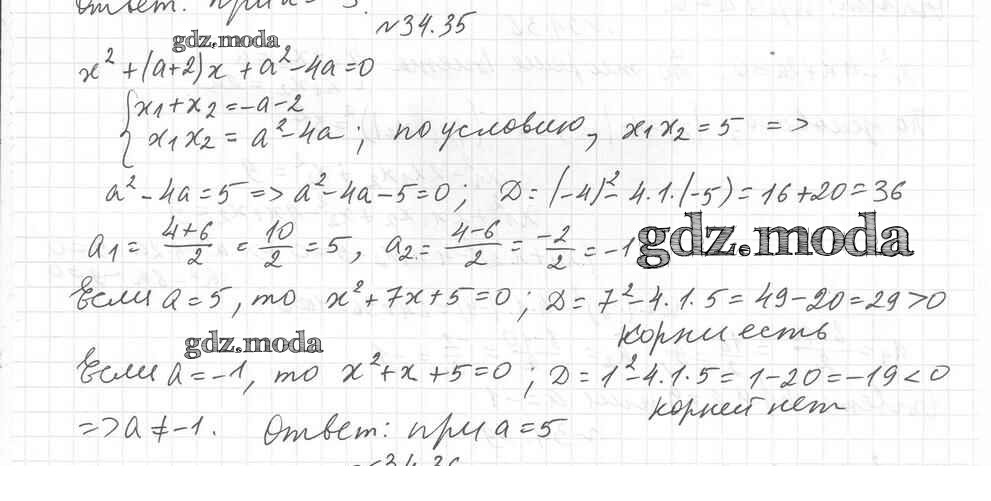 Ответ: при а = 5.
№34.35
gdz.moda
x² + (a+2)x + a² - 4a = 0
{ x₁ + x₂ = -a - 2
x₁x₂ = a² - 4a ; по условию, x₁x₂ = 5 =>
a² - 4a = 5 => a² - 4a - 5 = 0 ; D = (-4)² - 4·1·(-5) = 16 + 20 = 36
a₁ = (4+6)/2 = 10/2 = 5, a₂ = (4-6)/2 = -2/2 = -1
gdz.moda
Если a = 5, то x² + 7x + 5 = 0 ; D = 7² - 4·1·5 = 49 - 20 = 29 > 0
корни есть
gdz.moda
Если a = -1, то x² + x + 5 = 0 ; D = 1² - 4·1·5 = 1 - 20 = -19 < 0
корней нет
=> a ≠ -1. Ответ: при a = 5